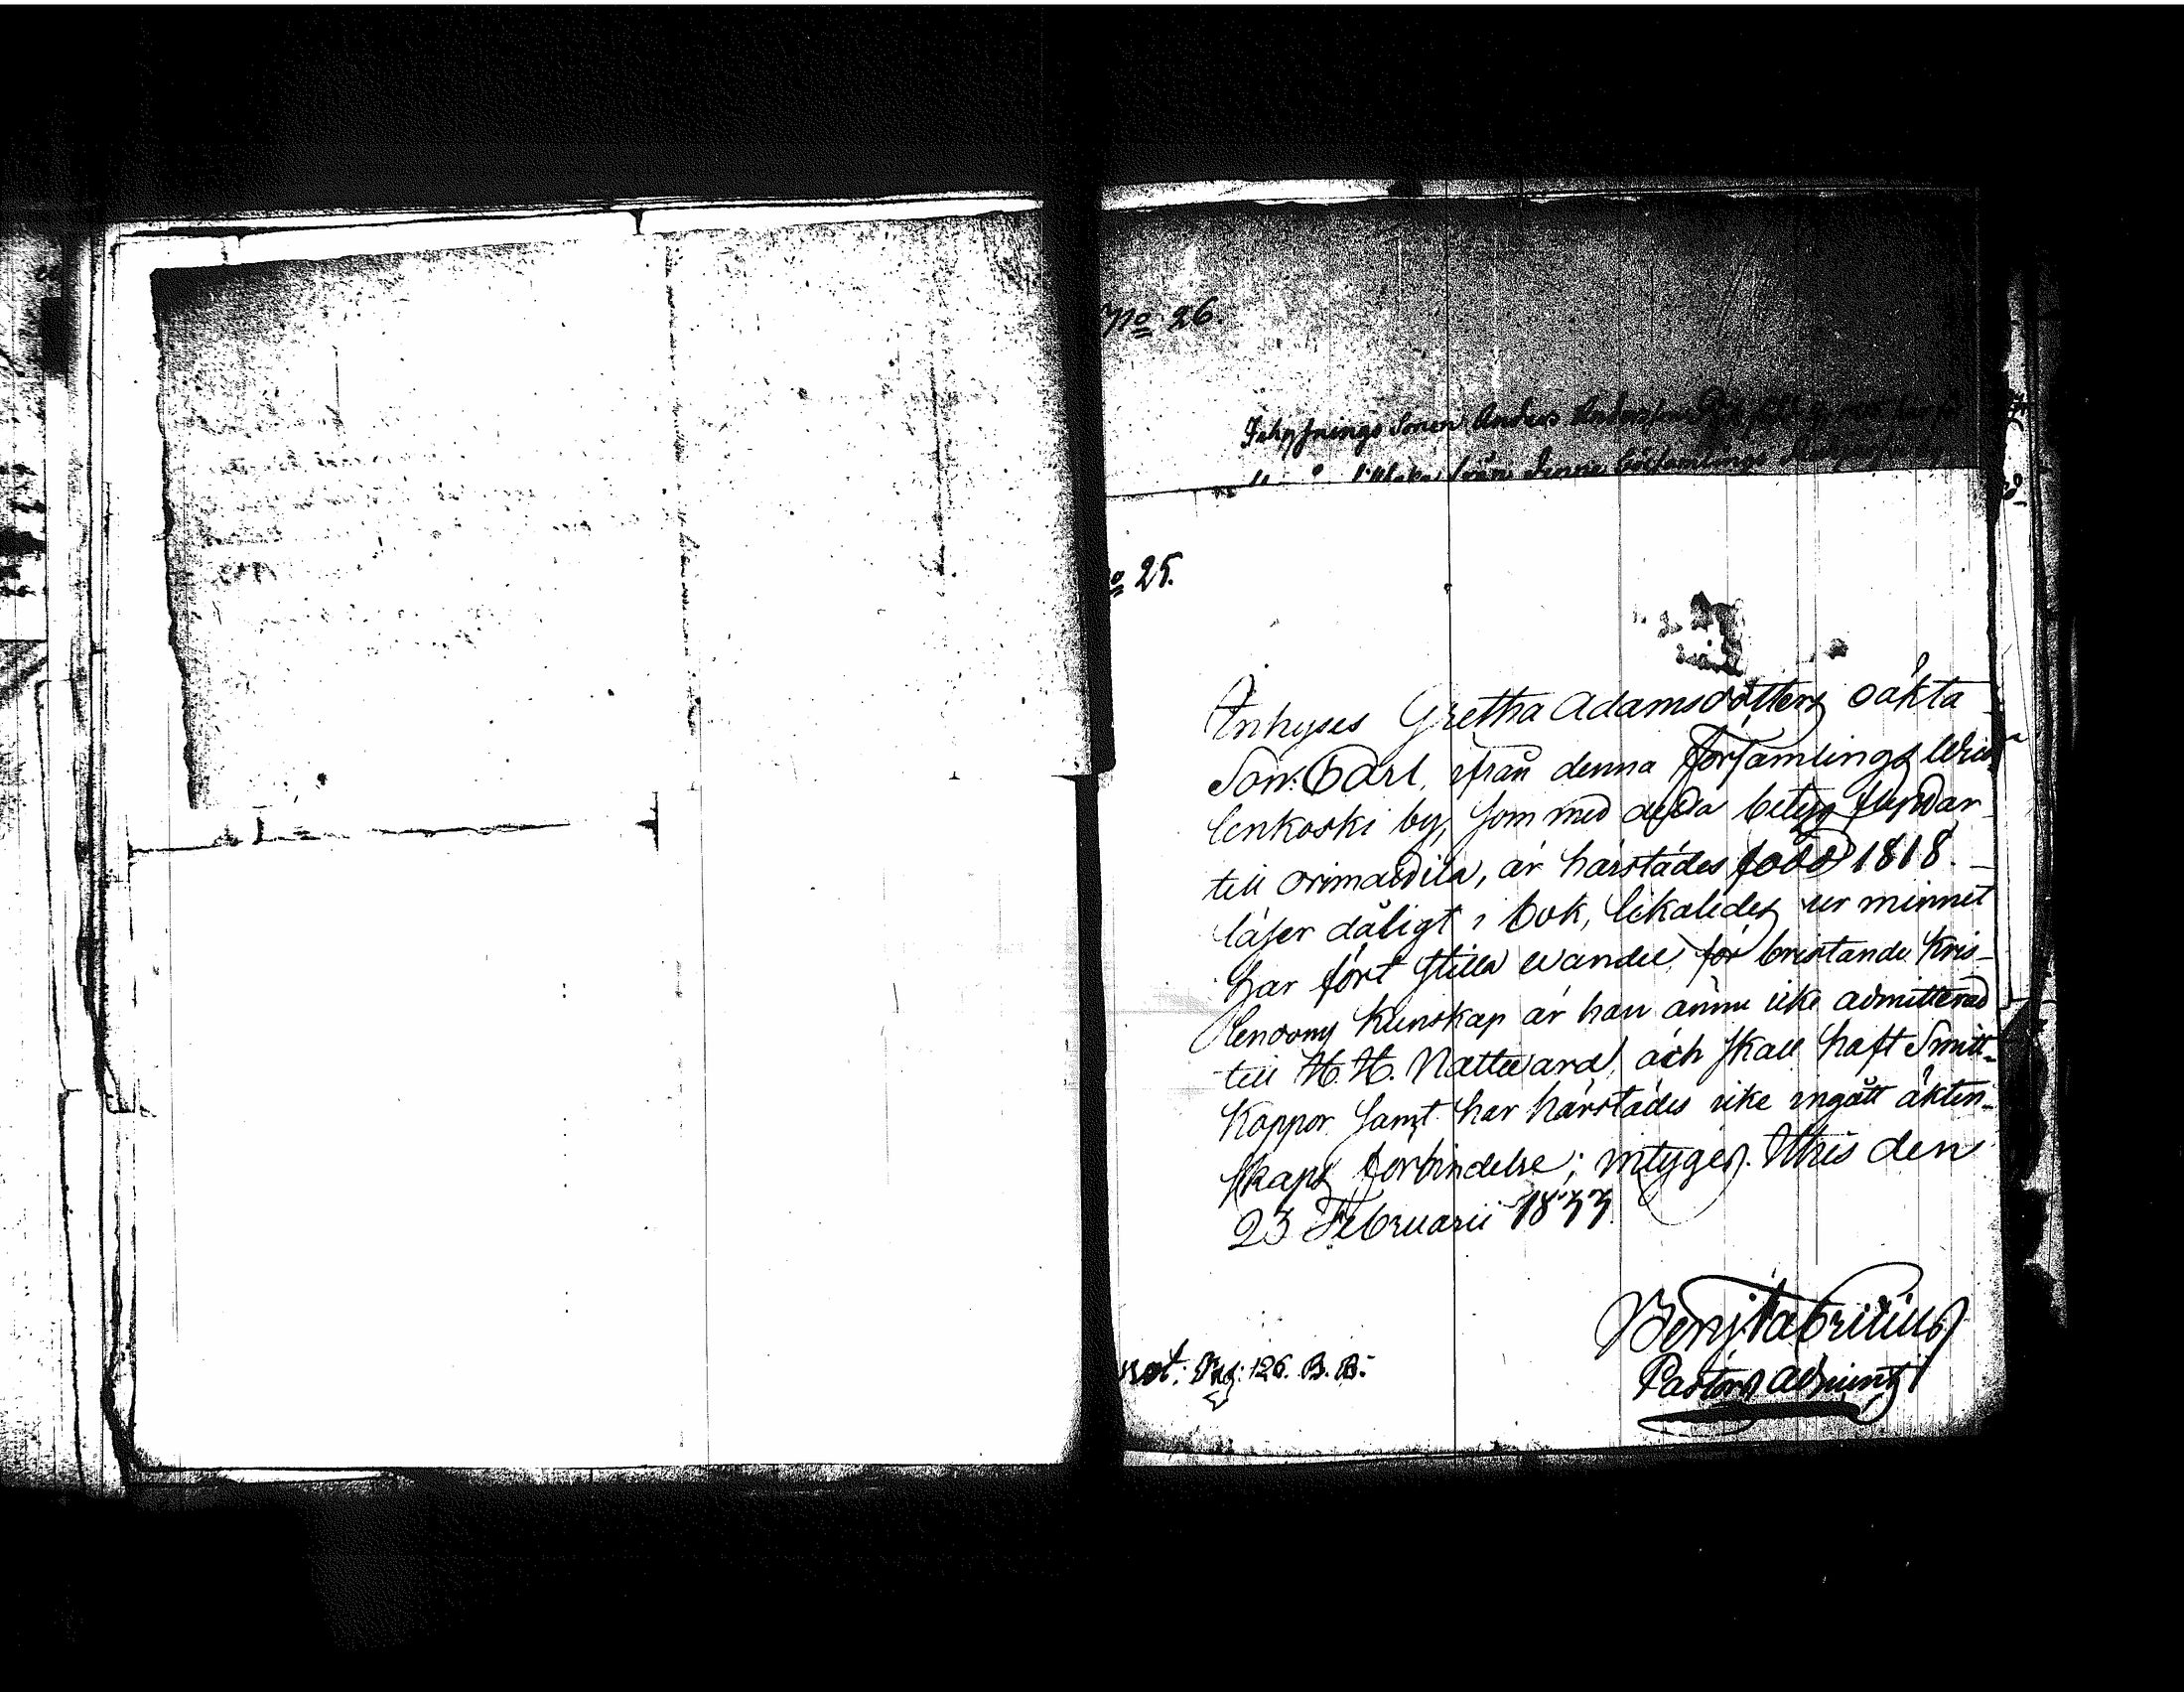 No 26.
Inhysnings Sonen Anders
från denna församlings
o 25.
Inhyses Gretha Adamsdotters oäkta
Son: Carl, ifrån denna Församlings
lenkoski by, som med detta betyg flyttar
till Orimattila, är härstädes född 1818.
läser dåligt i bok, likaledes ur minnet
har fört stilla wandel, för bristande Kris-
tendoms kunskap är han ännu icke admitterad
till H. H. Nattward, och skall haft Smitt-
koppor samt har härstädes icke ingått äkten-
skaps förbindelse; intygas. Ithis den
23 Februarii 1833.
Benj. Fabritius
Pastors adjunct
not. Pag: 126. B. B.